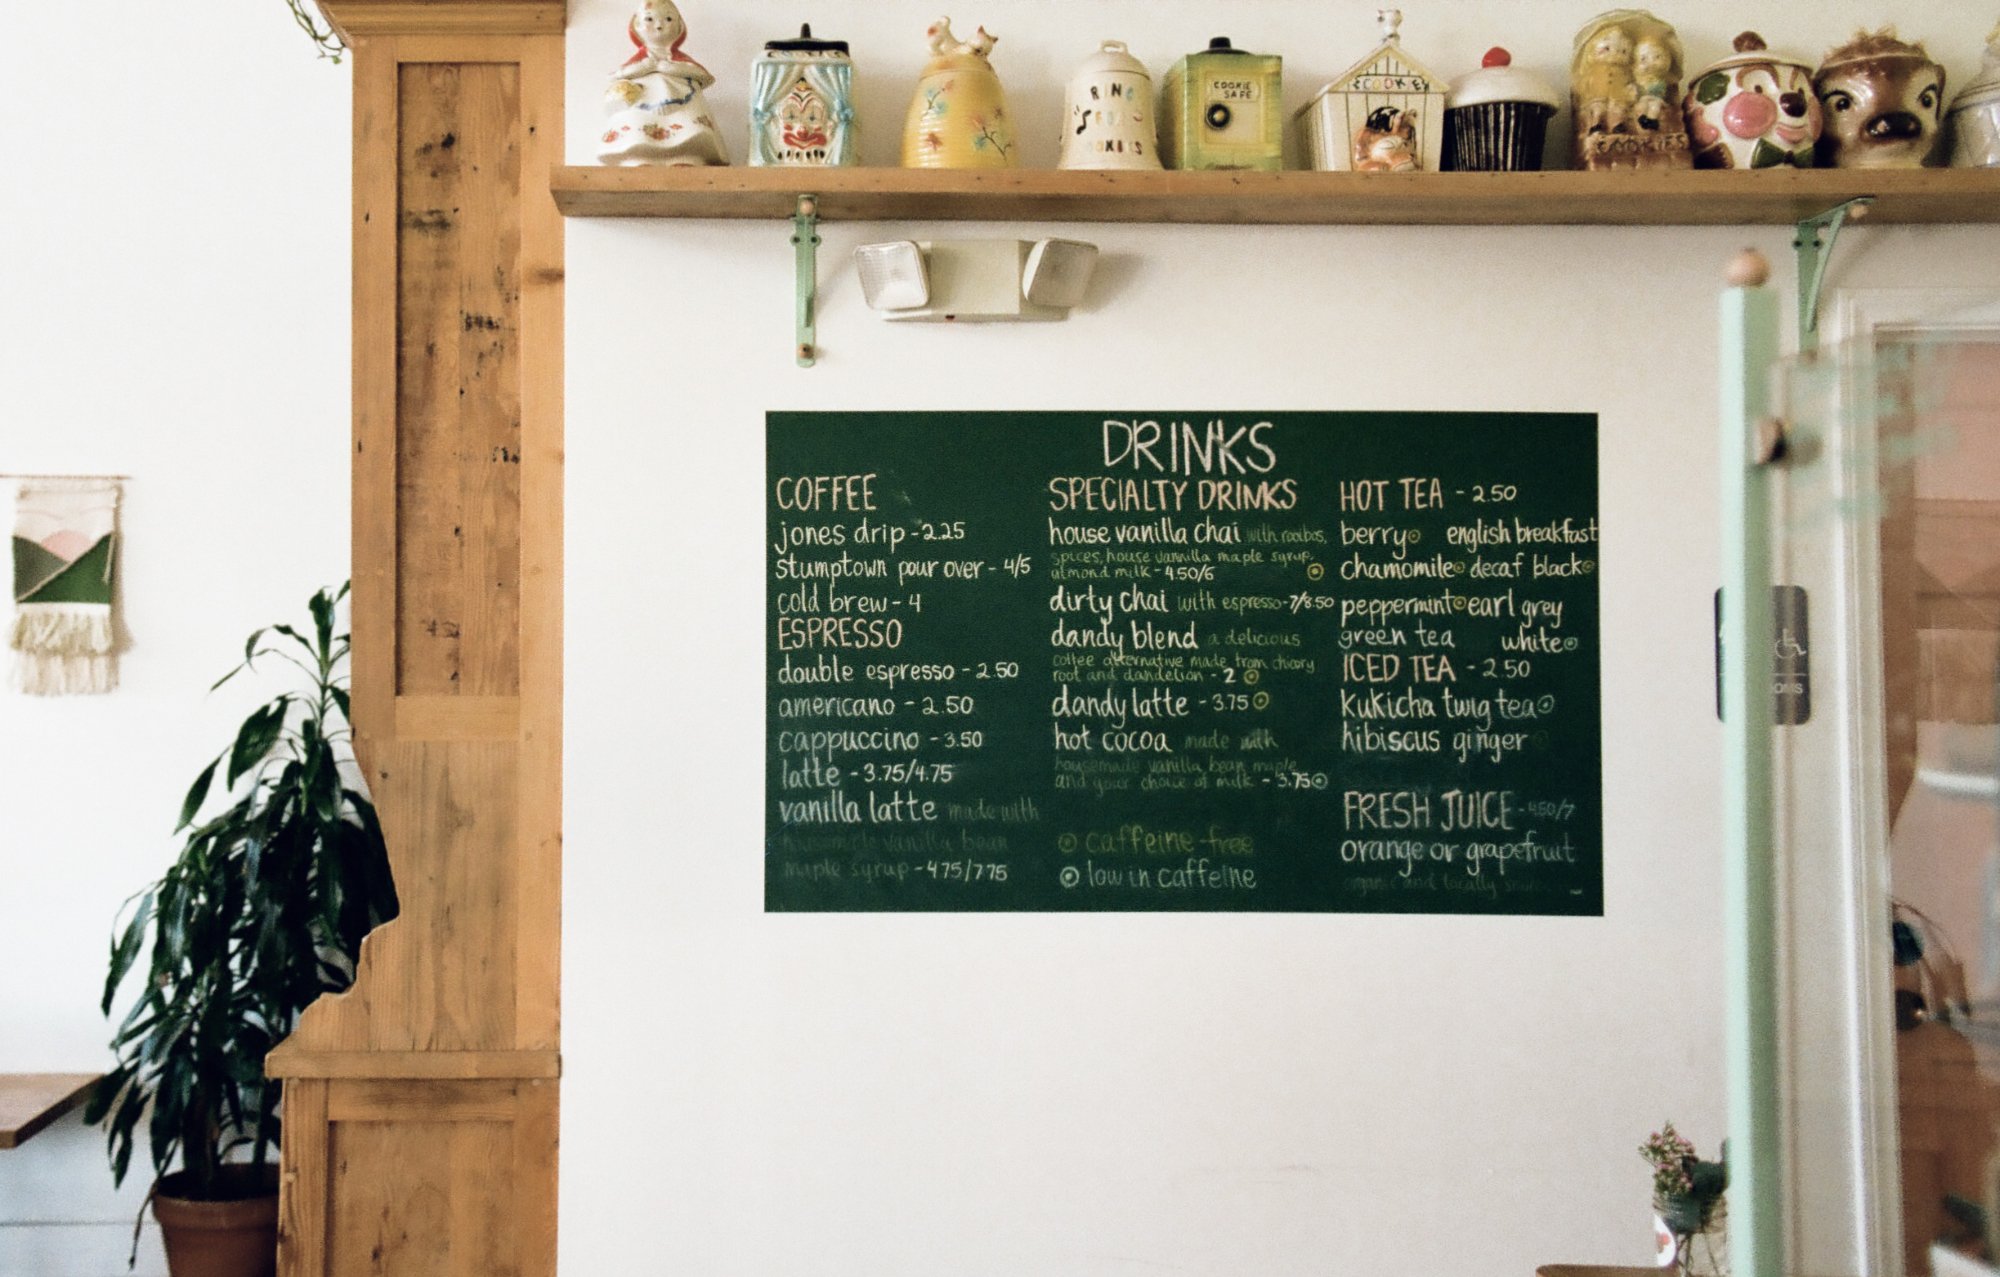 RING
FOR
COOKIES
COOKIE
SAFE
COOKIE
COOKIES
DRINKS
COFFEE
jones drip - 2.25
stumptown pour over - 4/5
cold brew - 4
ESPRESSO
double espresso - 2.50
americano - 2.50
cappuccino - 3.50
latte - 3.75/4.75
vanilla latte made with
housemade vanilla bean
maple syrup - 4.75/7.75
SPECIALTY DRINKS
house vanilla chai with rooibos,
spices, house vannilla maple syrup,
almond milk - 4.50/6
dirty chai with espresso - 7/8.50
dandy blend a delicious
coffee alternative made from chicory
root and dandelion - 2
dandy latte - 3.75
hot cocoa made with
housemade vanilla bean maple
and your choice of milk - 3.75
caffeine-free
low in caffeine
HOT TEA - 2.50
berry english breakfast
chamomile decaf black
peppermint earl grey
green tea white
ICED TEA - 2.50
kukicha twig tea
hibiscus ginger
FRESH JUICE - 4.50/7
orange or grapefruit
organic and locally